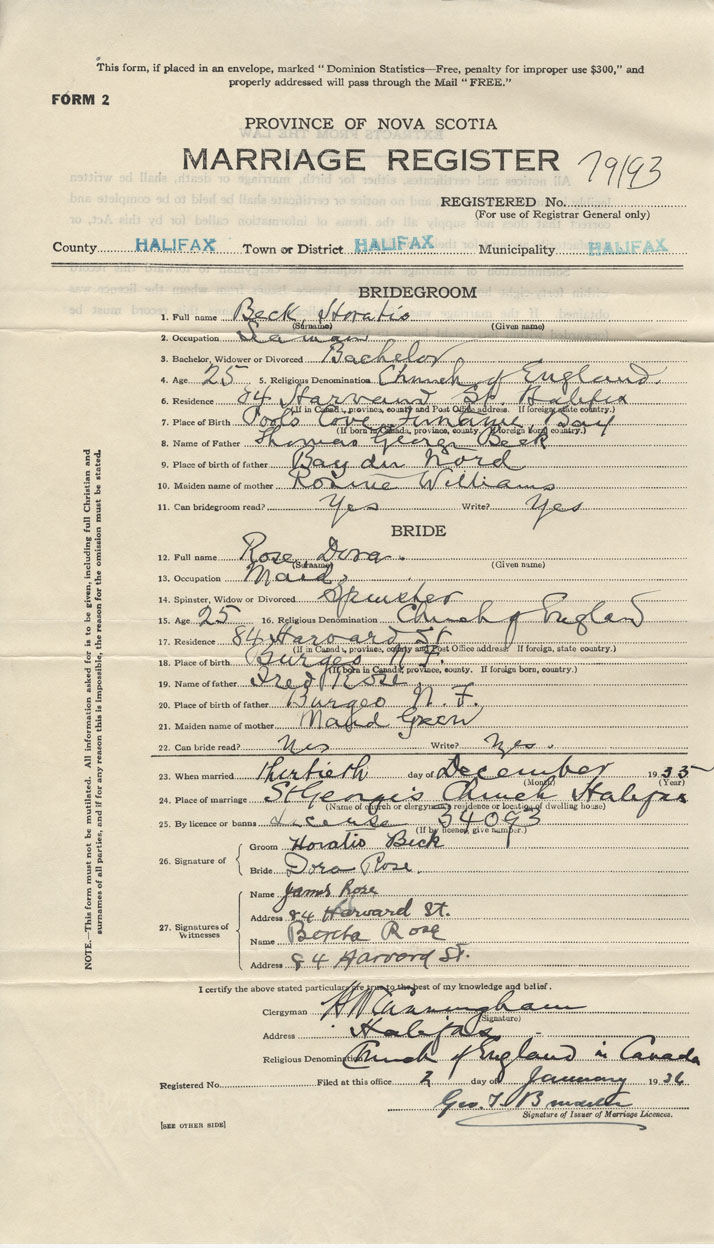 This form, if placed in an envelope, marked "Dominion Statistics—Free, penalty for improper use $300," and
properly addressed will pass through the Mail "FREE."
FORM 2
PROVINCE OF NOVA SCOTIA
MARRIAGE REGISTER 79193
REGISTERED No.
(For use of Registrar General only)
County HALIFAX Town or District HALIFAX Municipality HALIFAX
BRIDEGROOM
1. Full name Beck, Horatio
(Surname) (Given name)
2. Occupation Seaman
3. Bachelor, Widower or Divorced Bachelor
4. Age 25 5. Religious Denomination Church of England
6. Residence 84 Harvard St. Halifax
(If in Canada, province, county and Post Office address. If foreign, state country.)
7. Place of Birth Pools Cove Fortune Bay
(If born in Canada, province, county. If foreign born, country.)
8. Name of Father Thomas George Beck
9. Place of birth of father Bay du Nord
10. Maiden name of mother Williams
11. Can bridegroom read? Yes Write? Yes
BRIDE
12. Full name Rose, Dora.
(Surname) (Given name)
13. Occupation Maid.
14. Spinster, Widow or Divorced Spinster
15. Age 25 16. Religious Denomination Church of England
17. Residence 84 Harvard St
(If in Canada, province, county and Post Office address. If foreign, state country.)
18. Place of birth Burgeo N.F.
(If born in Canada, province, county. If foreign born, country.)
19. Name of father Fred Rose
20. Place of birth of father Burgeo N.F.
21. Maiden name of mother Maud Green
22. Can bride read? Yes Write? Yes.
23. When married thirtieth day of December 1935
(Month) (Year)
24. Place of marriage St George's Church Halifax
(Name of church or clergyman's residence or location of dwelling house)
25. By licence or banns License 54093
(If by licence, give number.)
26. Signature of
Groom Horatio Beck
Bride Dora Rose.
27. Signatures of Witnesses
Name James Rose
Address 84 Harvard St.
Name Bertha Rose
Address 84 Harvard St.
I certify the above stated particulars are true to the best of my knowledge and belief.
Clergyman H W Cunningham
(Signature)
Address Halifax
Religious Denomination Church of England in Canada
Registered No. Filed at this office 2 day of January 1936
Geo. T.
Signature of Issuer of Marriage Licences.
[SEE OTHER SIDE]
NOTE.—This form must not be mutilated. All information asked for is to be given, including full Christian and
surnames of all parties, and if for any reason this is impossible, the reason for the omission must be stated.